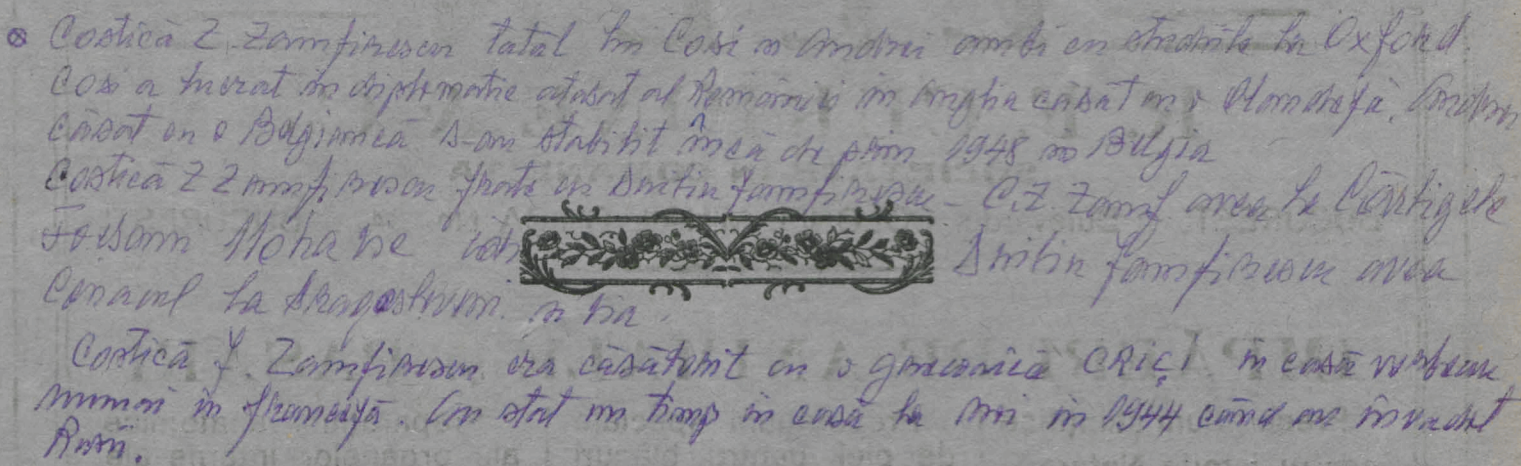 Costică Z. Zamfirescu tatăl lui Cosi și Andrei ambi cu studiile la Oxford.
Cosi a lucrat în diplomație atașat al României în Anglia căsat cu o Olandeză. Andrei
căsat cu o Belgiancă s-au stabilit încă de prin 1948 în Belgia
Costică Z Zamfirescu frate cu Duiliu Zamfirescu - C.Z. Zamf avea la Cârligele
Focșani Duiliu Zamfirescu avea
Conacul la și via.
Costică Z. Zamfirescu era căsătorit cu o grecoaică în casă vorbeau
numai în franceză. Au stat un timp în casă la noi în 1944 când au invadat
Rușii.